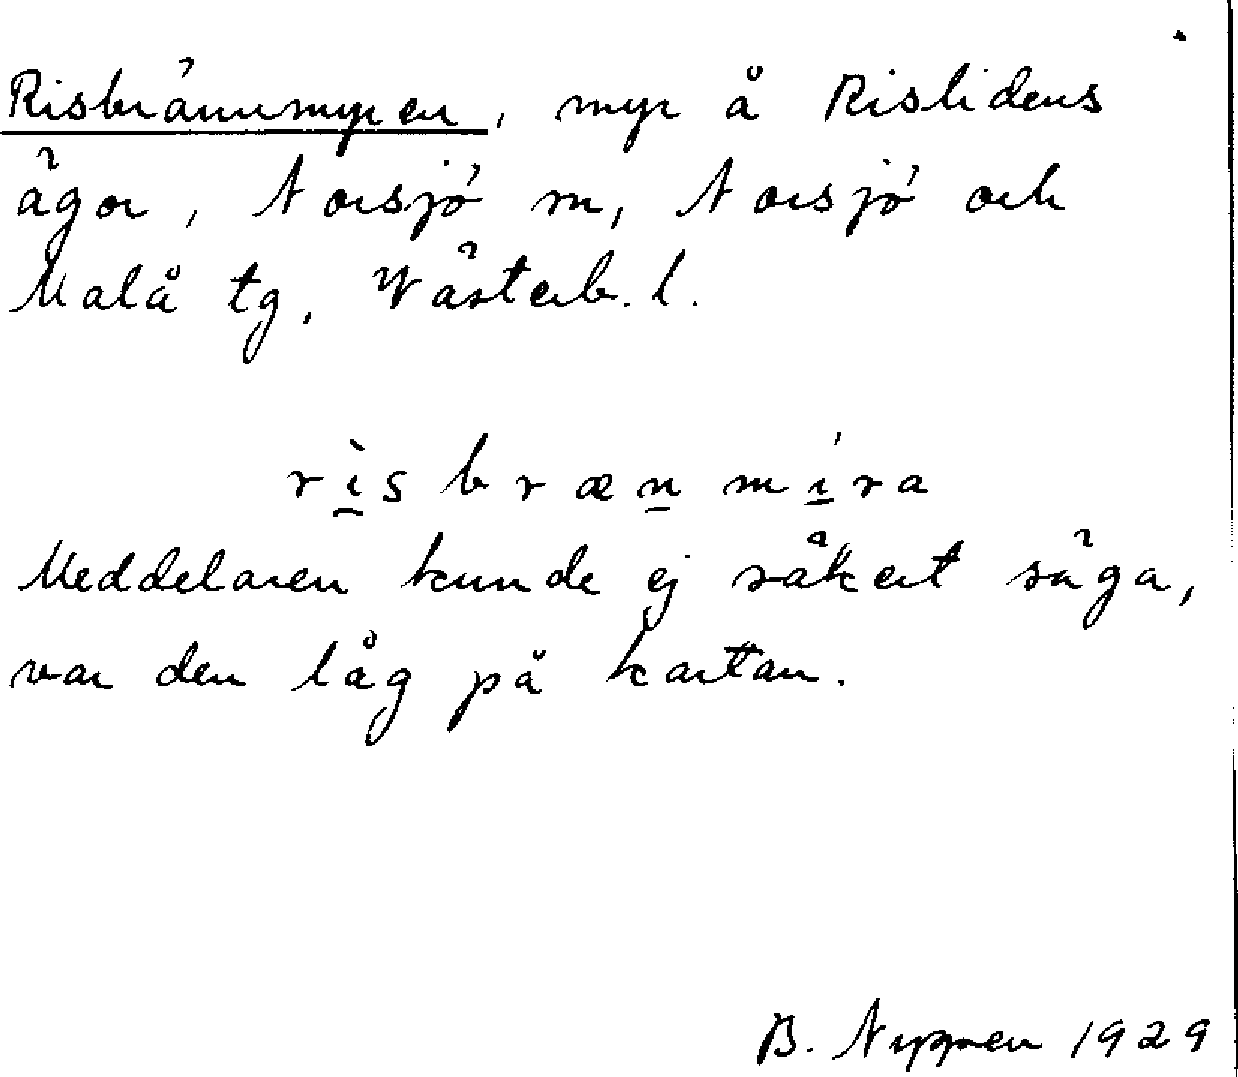 Risbrännmyren, myr å Rislidens
ägor, Norsjö sn, Norsjö och
Malå tg, Västerb. l.
rìsbrænmíra
Meddelaren kunde ej säkert säga,
var den låg på kartan.
B. Nygren 1929